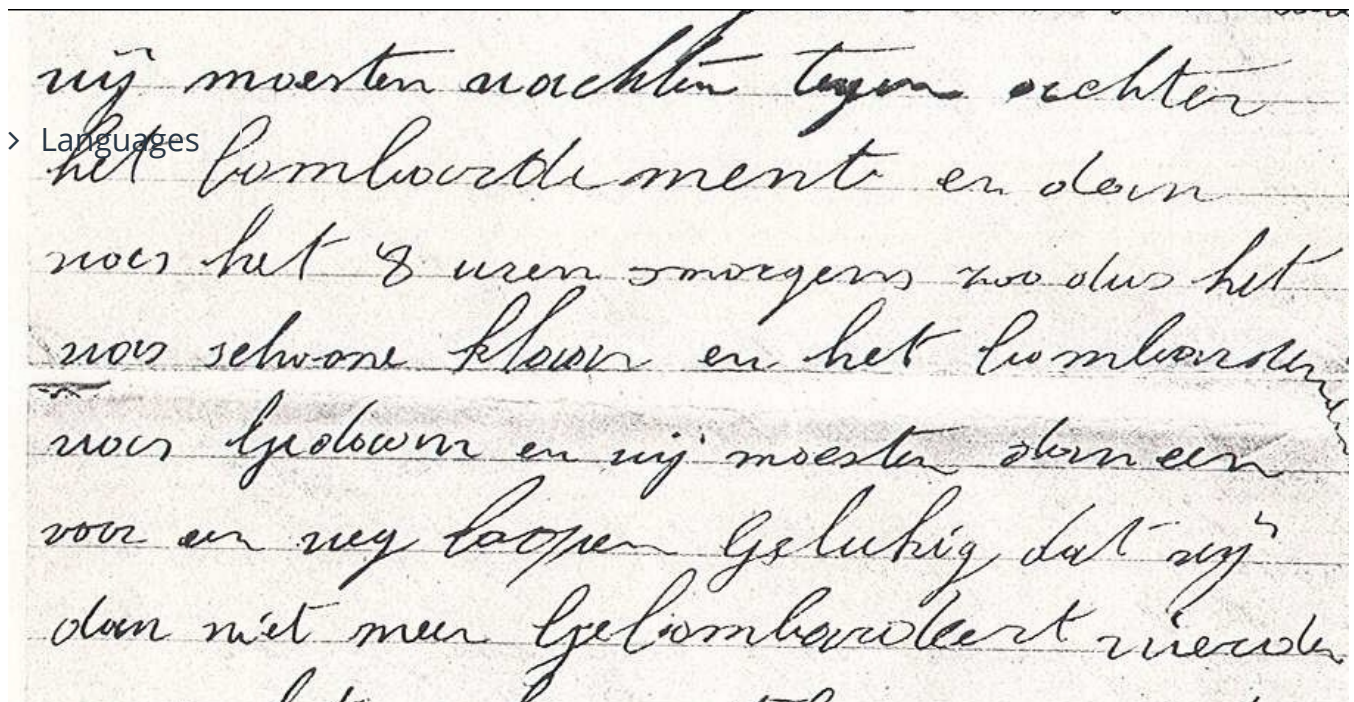 wij moesten wachten tegen achter
Languages
het bombardement en dan
was het 8 uren smorgens zoo dus het
was schoone klaar en het bombarderen
was gedaan en wij moesten dan een
voor en weg loopen Gelukig dat wij
dan niet meer gebombardeert wierden